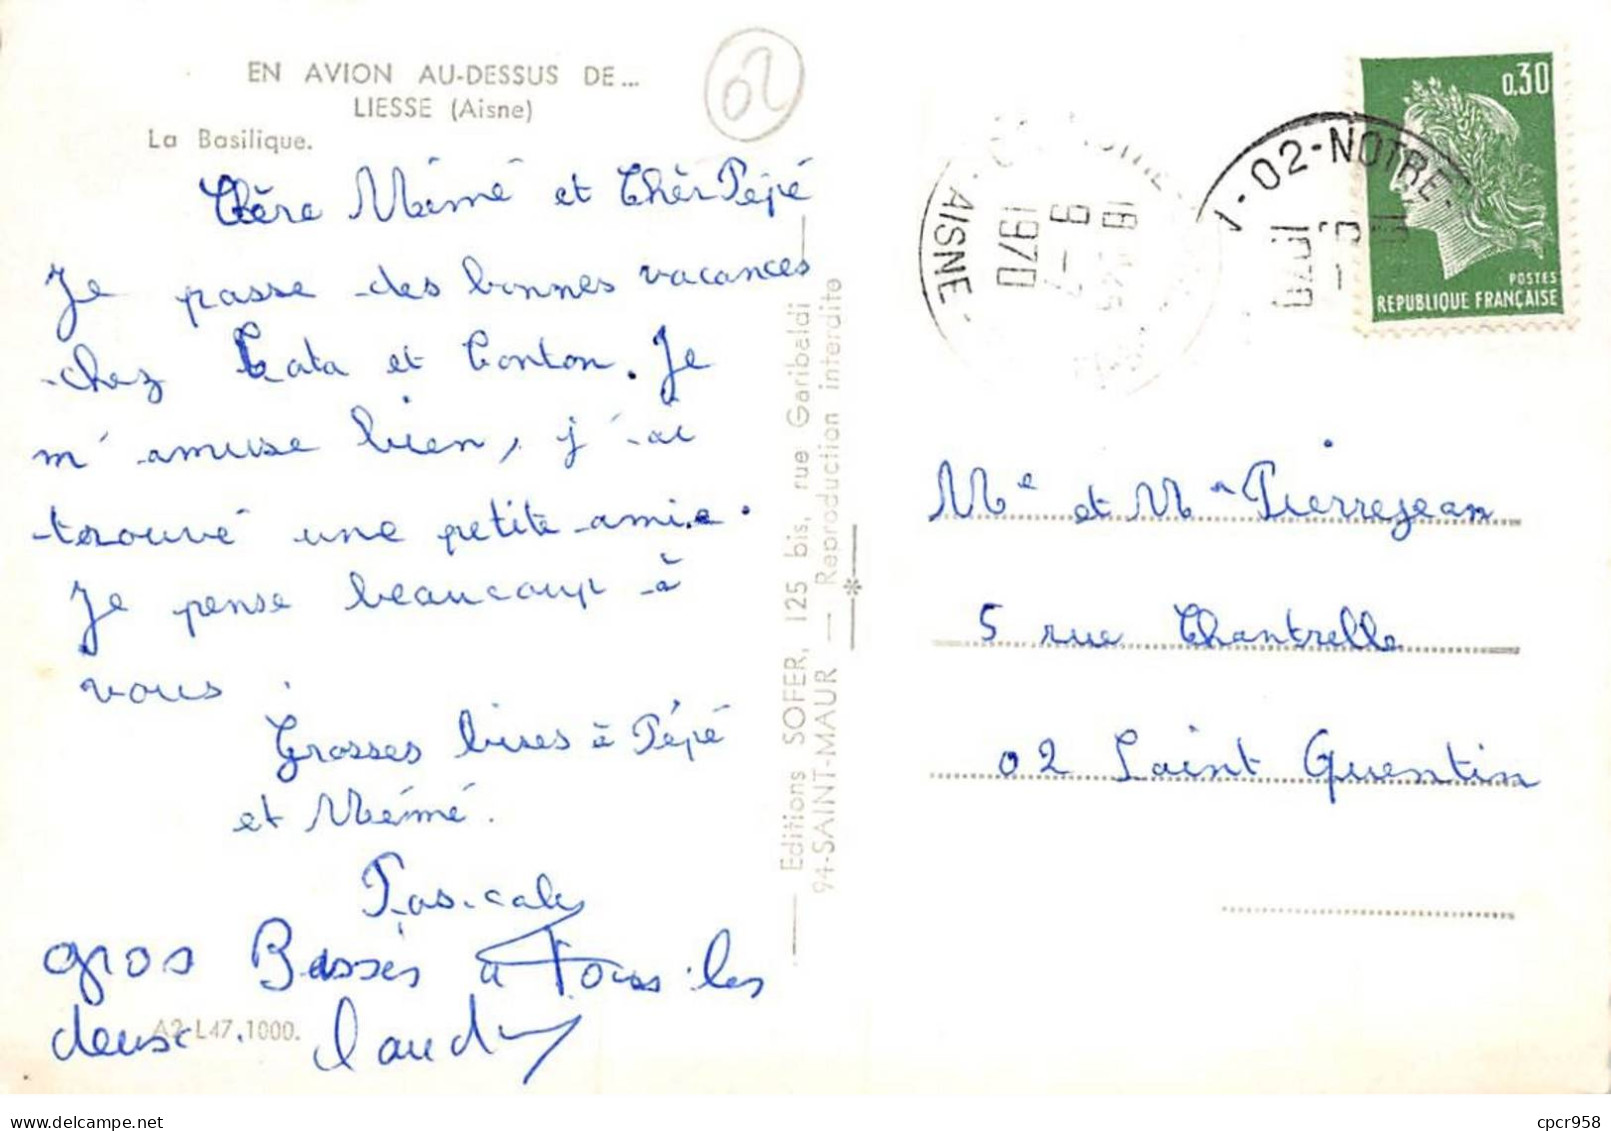 EN AVION AU-DESSUS DE...
LIESSE (Aisne)
La Basilique.
02
Chère Mémé et Chèr Pépé
Je passe des bonnes vacances
chez Tata et Tonton. Je
m'amuse bien, j'ai
trouvé une petite amie.
Je pense beaucoup à
vous.
Grosses bises à Pépé
et Mémé.
Pascale
gros Bisses a Tous les
deux Claudy
A2-L47.1000.
Editions SOFER, 125 bis, rue Garibaldi
94-SAINT-MAUR — Reproduction interdite
AISNE
18
9-7
1970
02-NOTRE-
1970
0,30
POSTES
REPUBLIQUE FRANÇAISE
Me et Mr Pierrejean
5 rue Chantrelle
02 Saint Quentin
delcampe.net
cpcr958